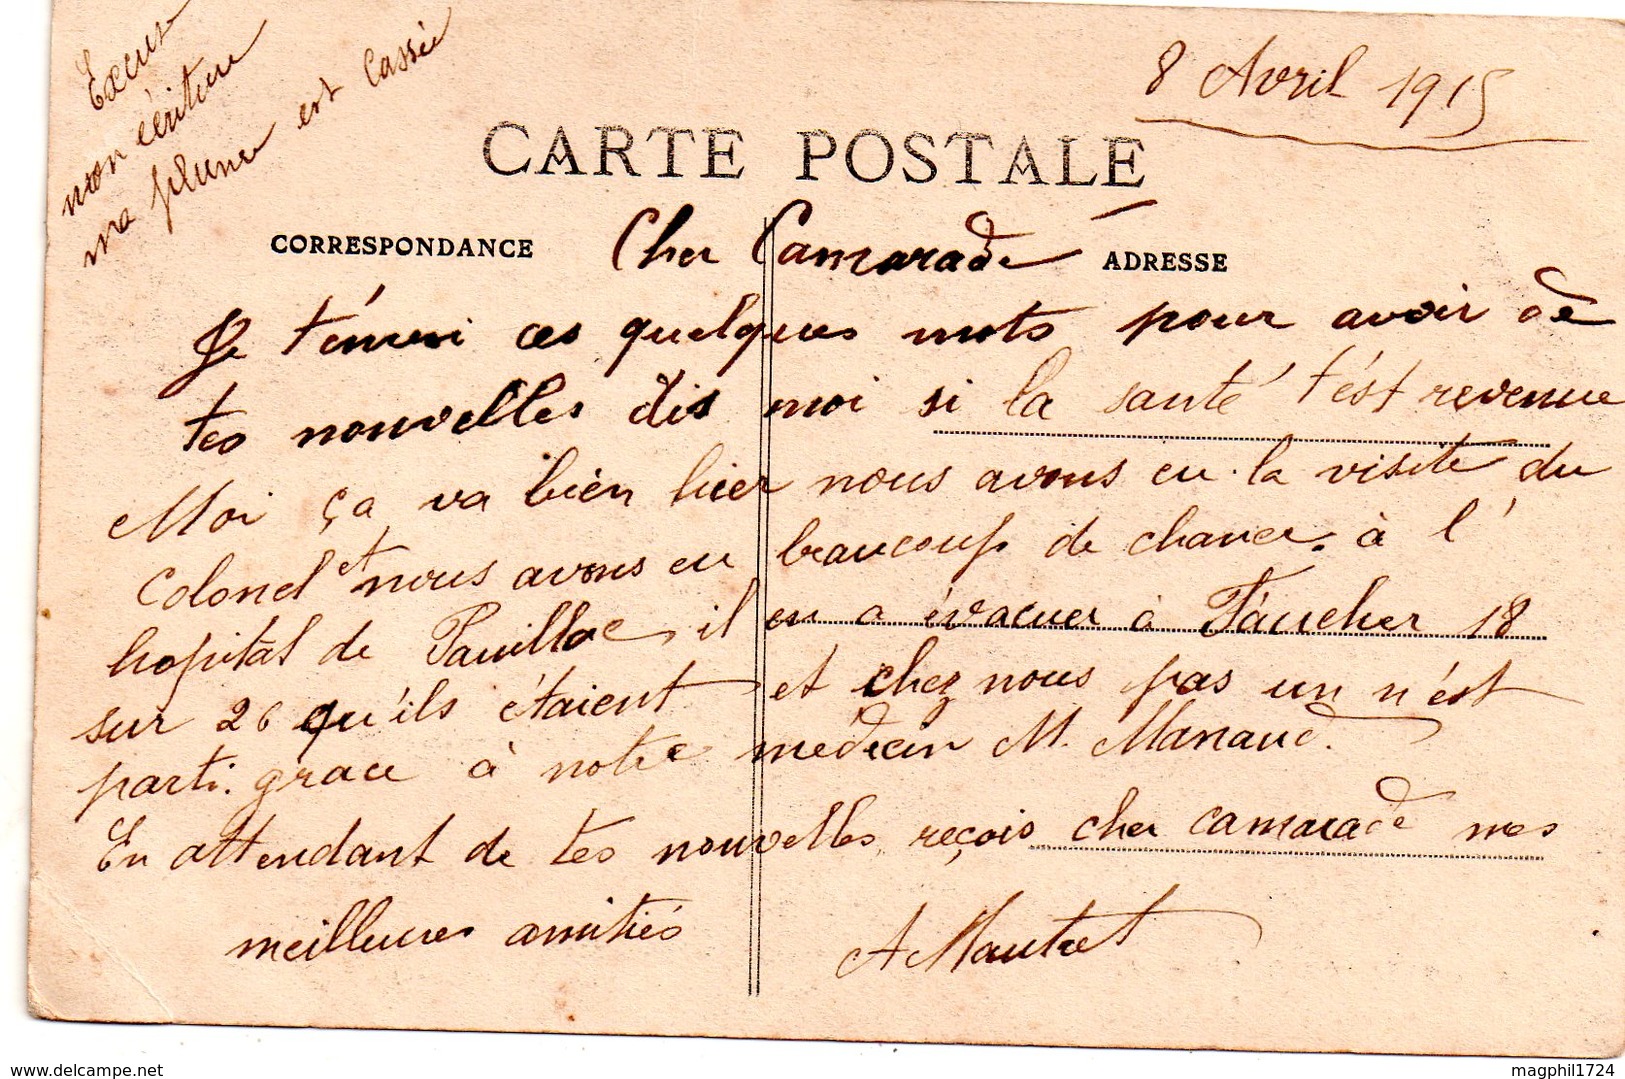 Excus
mon écriture
ma plume est cassée
8 Avril 1915
CARTE POSTALE
CORRESPONDANCE
Cher Camarade
ADRESSE
Je t'envoi ces quelques mots pour avoir de
tes nouvelles dis moi si la santé t'est revenue
Moi ça va bien hier nous avons eu la visite du
Colonel et nous avons eu beaucoup de chance. à l'
hopital de Pauillac, il en a évacuer à Faucher 18
sur 26 qu'ils étaient et chez nous pas un n'est
parti. grace à notre médecin M. Manaud.
En attendant de tes nouvelles, reçois cher camarade mes
meilleures amitiés
A Mautret
delcampe.net
magphil1724